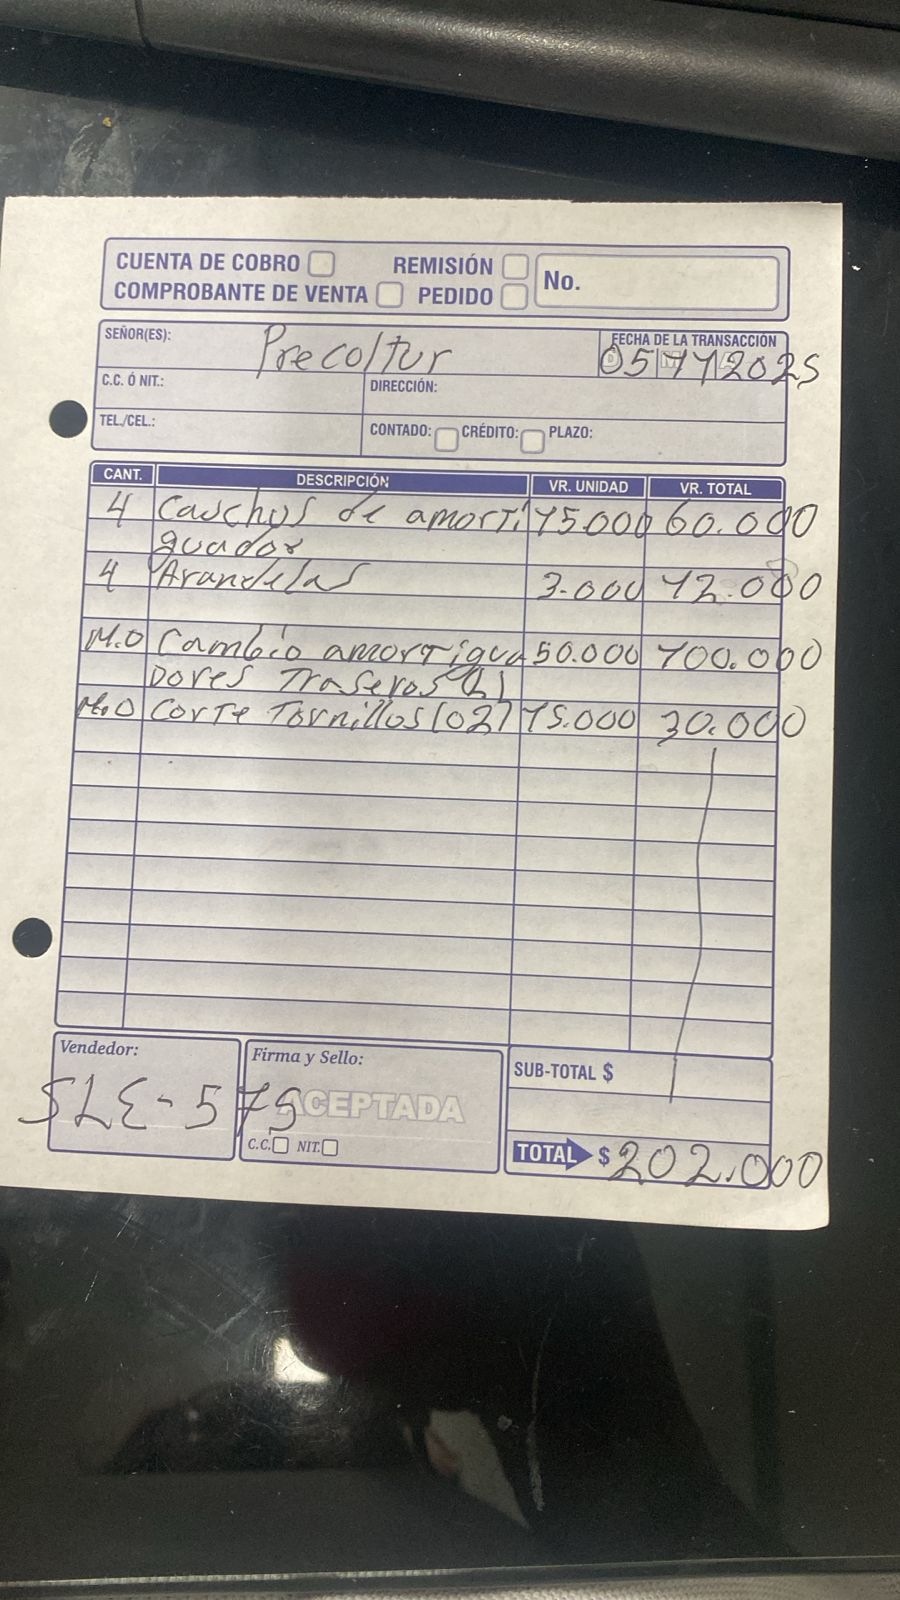 CUENTA DE COBRO REMISIÓN No.
COMPROBANTE DE VENTA PEDIDO
SEÑOR(ES): Precoltur FECHA DE LA TRANSACCIÓN
05 11 2025
C.C. Ó NIT.: DIRECCIÓN:
TEL./CEL.: CONTADO: CRÉDITO: PLAZO:
CANT. DESCRIPCIÓN VR. UNIDAD VR. TOTAL
4 Cauchos de amorti 15.000 60.000
guador
4 Arandelas 3.000 12.000
M.O Cambio amortigua 50.000 100.000
Dores Traseros
M.O Corte Tornillos (02) 15.000 30.000
Vendedor: Firma y Sello: SUB-TOTAL $
SLE-575 ACEPTADA
C.C. NIT. TOTAL $ 202.000